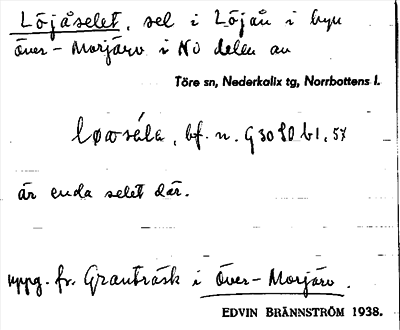 Löjåselet, sel i Löjån i byn
Över-Morjärv i NO delen av
Töre sn, Nederkalix tg, Norrbottens l.
bf. n. G 30
är enda selet där.
uppg. fr. Granträsk i Över-Morjärv.
EDVIN BRÄNNSTRÖM 1938.